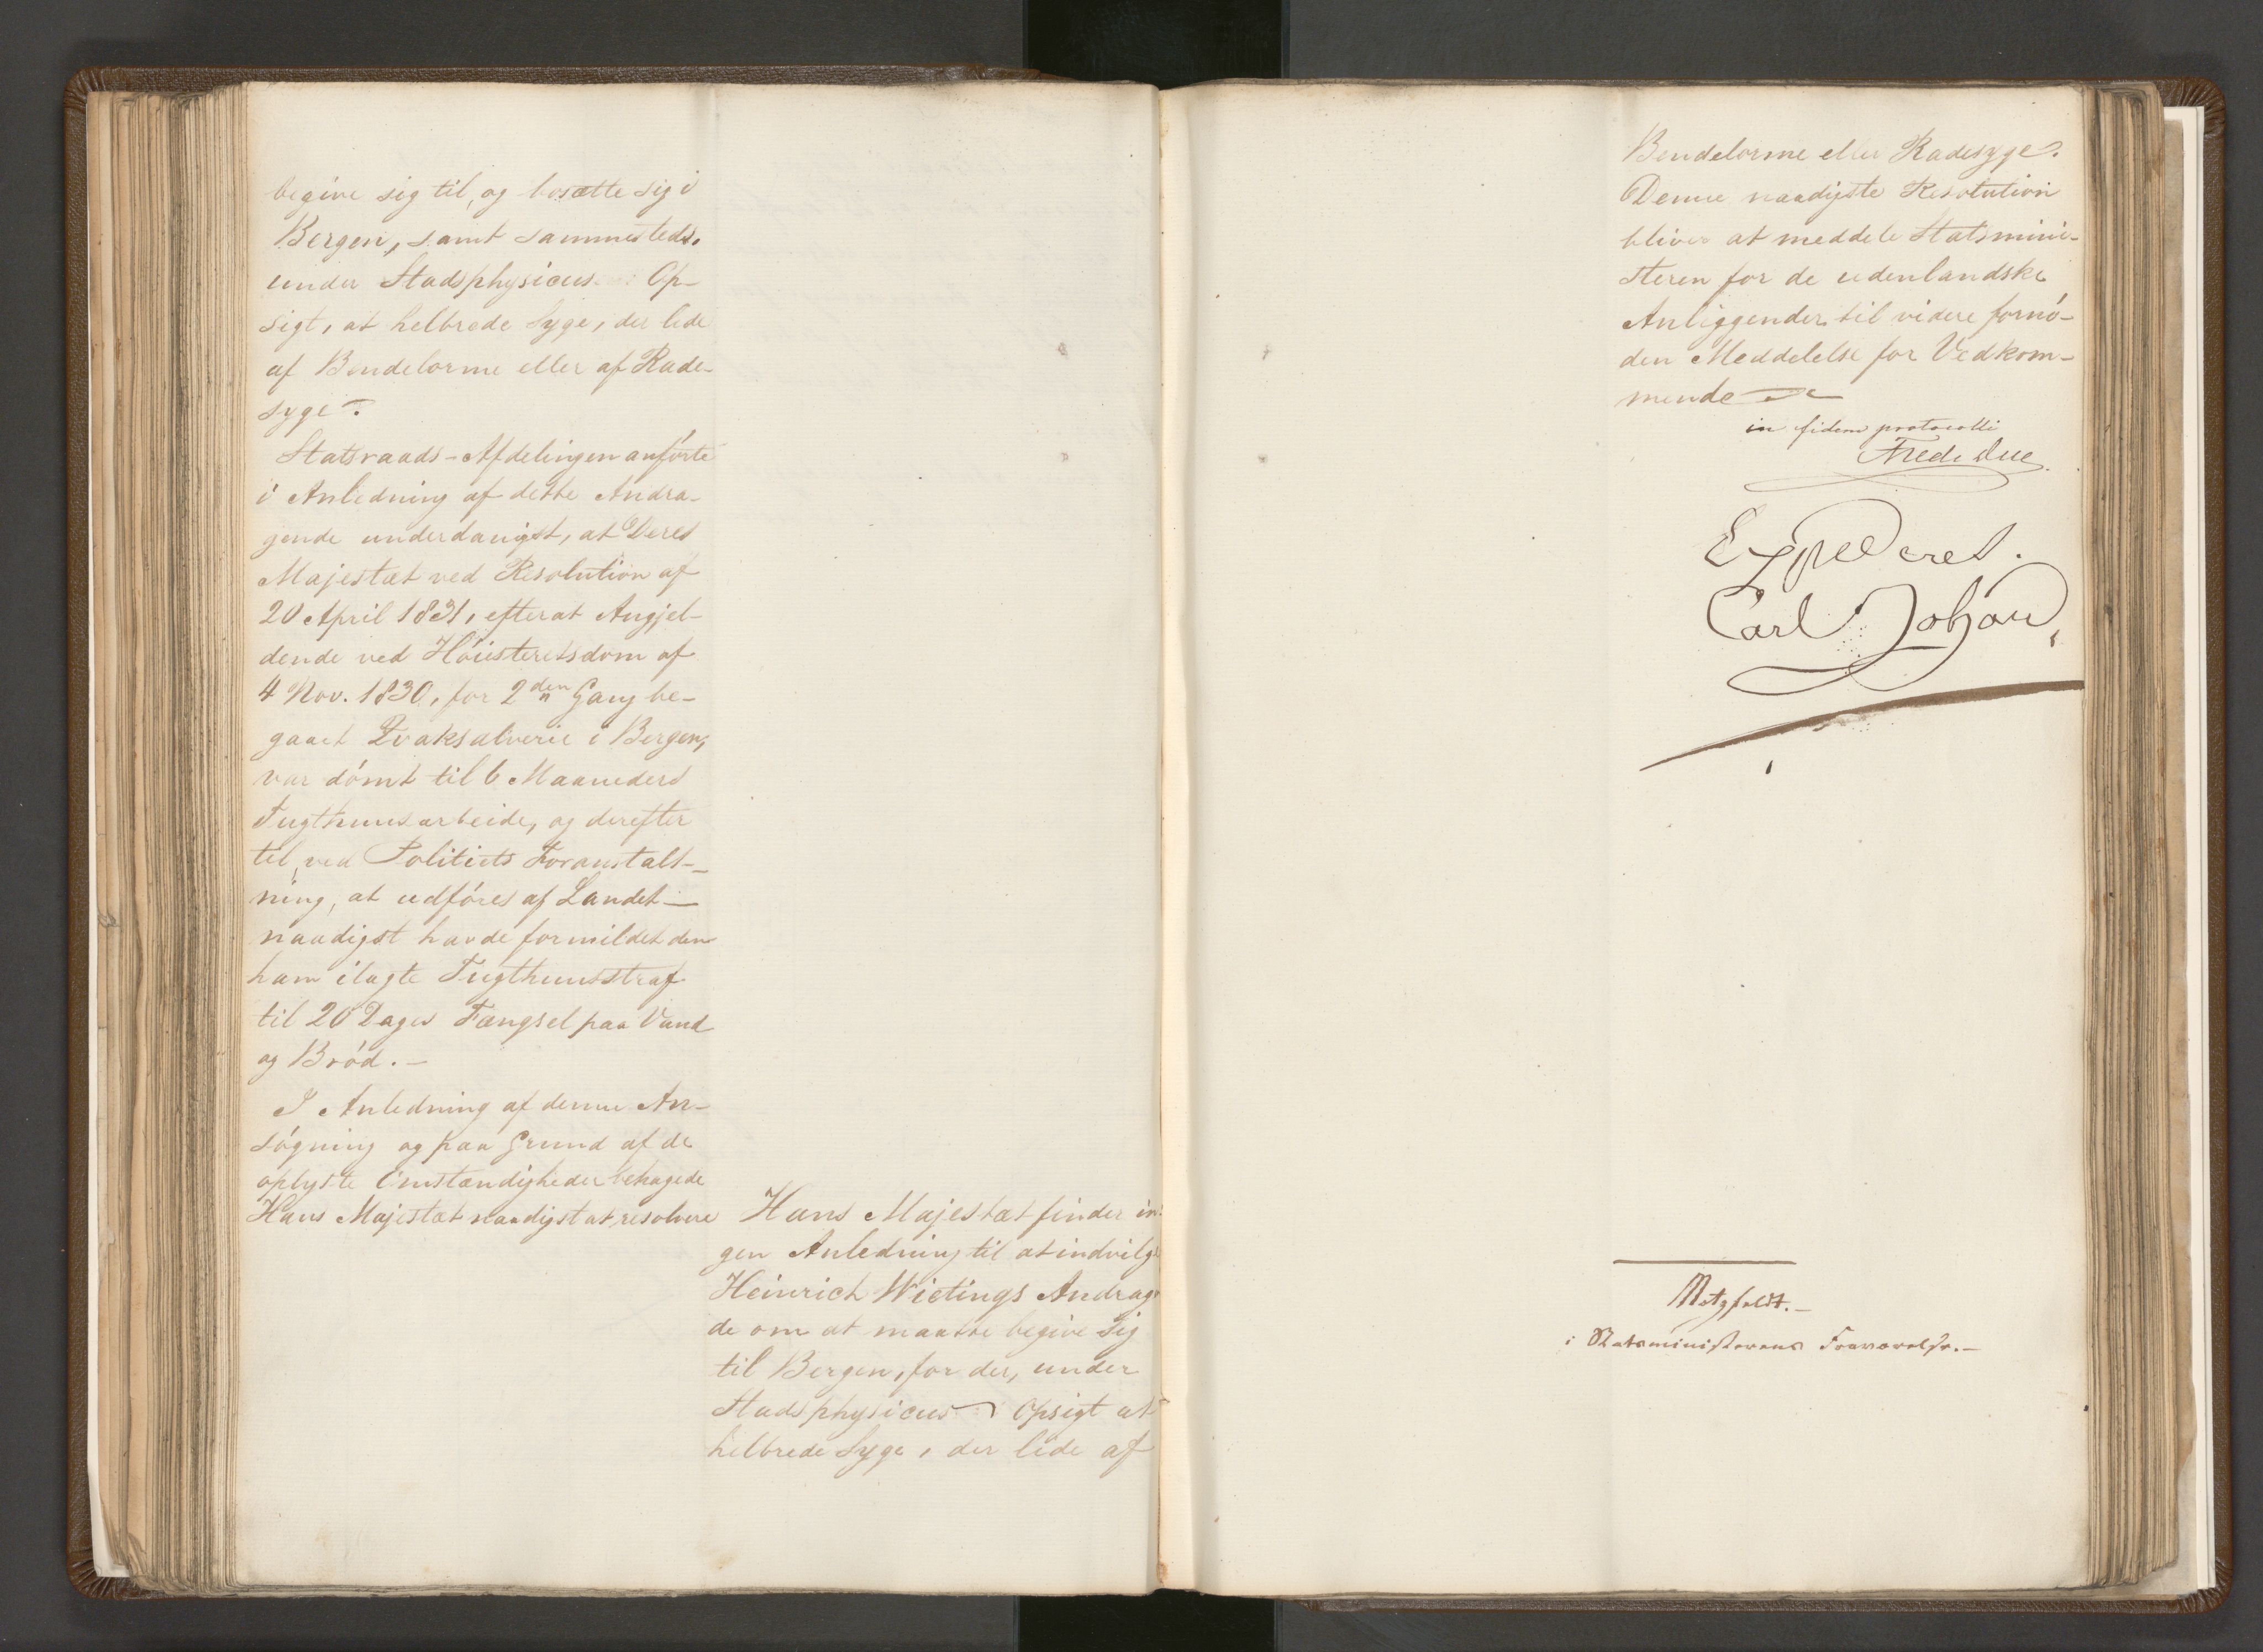 begive sig til, og bosætte sig i
Bergen, samt sammesteds,
under Stadsphysicus Op-
sigt, at helbrede Syge, der lide
af Bendelorme eller af Rade-
syge.
Statsraads-Afdelingen anförte
i Anledning af dette Andra-
gende underdanigst, at Deres
Majestæt ved Resolution af
20 April 1831, efterat Angjel-
dende ved Höiesteretsdom af
4 Nov. 1830, for 2den Gang be-
gaaet Qvaksalverie i Bergen,
var dömt til 6 Maaneders
Tugthuusarbeide, og derefter
til, ved Politiets Foranstalt-
ning, at udföres af Landet –
naadigst havde formildet den
ham ilagte Tugthuusstraf
til 20 Dages Fængsel paa Vand
og Bröd. –
I Anledning af denne An-
sögning og paa Grund af de
oplyste Omstændigheder behagede
Hans Majestæt naadigst at resolvere
Hans Majestæt finder in-
gen Anledning til at indvilge
Heinrich Wietings Andragen
de om at maatte begive sig
til Bergen, for der, under
Stadsphysicus Opsigt at
helbrede Syge, der lide af
Bendelorme eller Radesyge.
Denne naadigste Resolution
bliver at meddele Statsmini-
steren for de udenlandske
Anliggender til videre fornö-
den Meddelelse for Vedkom-
mende
in fidem protocolli
Fred. Due.
Expederet.
Carl Johan
Motzfeldt. –
i Statsministerens Fraværelse. –